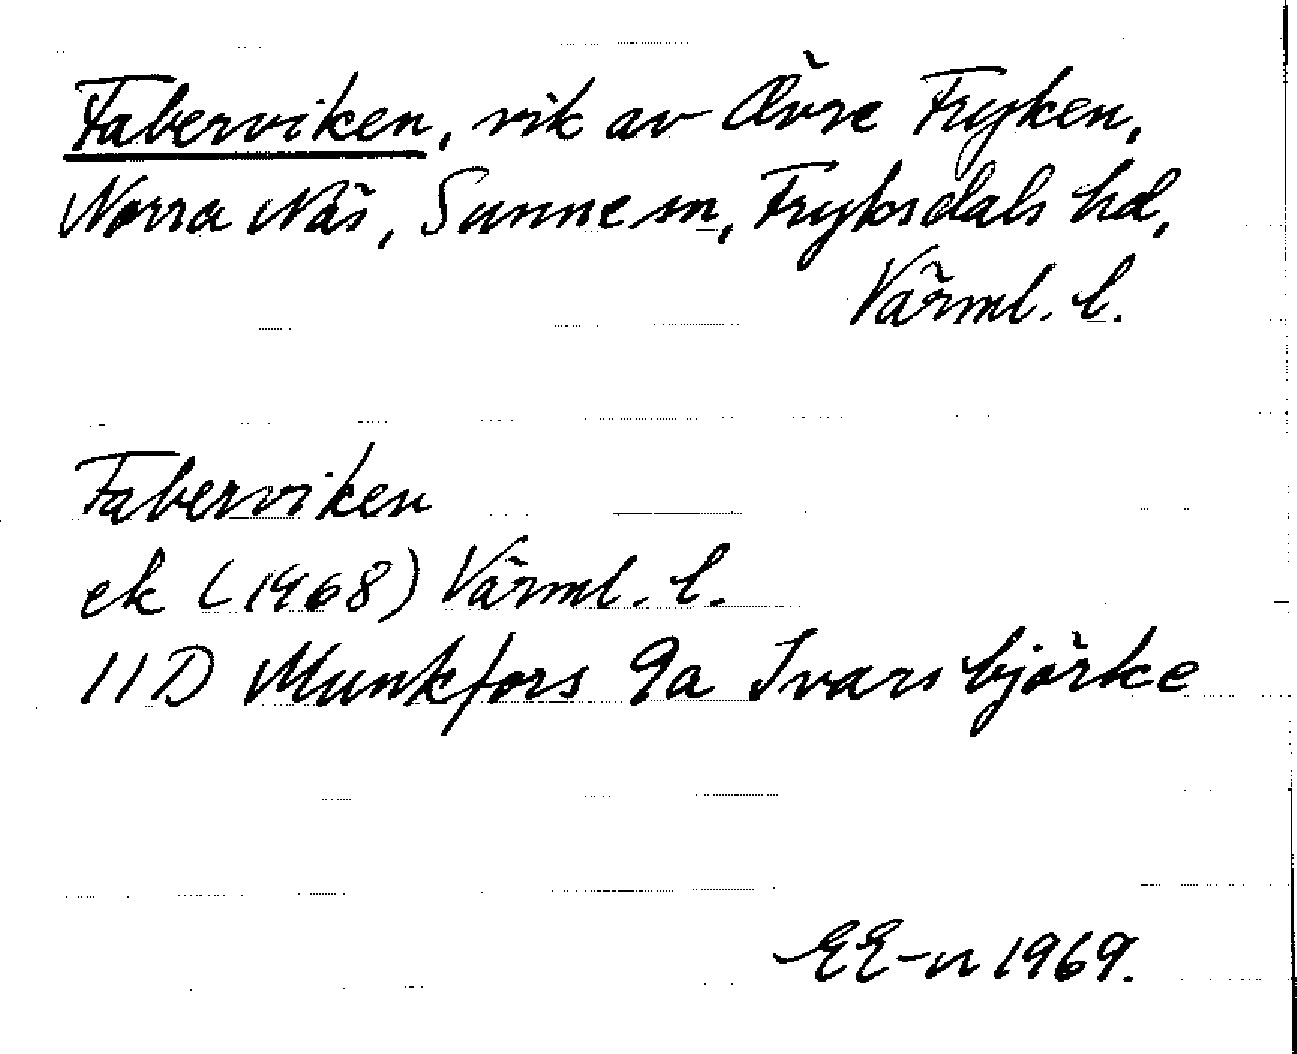 Faberviken, vik av Övre Fryken,
Norra Näs, Sunne sn, Fryksdals hd,
Värml. l.
Faberviken
ek (1968) Värml. l.
11D Munkfors 9a Ivarsbjörke
EE-n 1969.